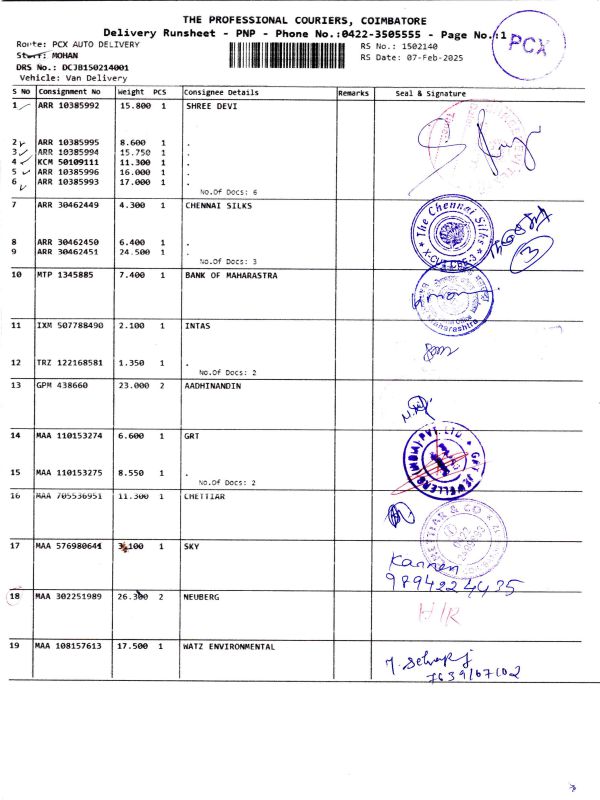 THE PROFESSIONAL COURIERS, COIMBATORE
Delivery Runsheet - PNP - Phone No.:0422-3505555 - Page No.:1
Route: PCX AUTO DELIVERY
RS No.: 1502140
PCX
Staff: MOHAN
RS Date: 07-Feb-2025
DRS No.: DCJB150214001
Vehicle: Van Delivery
S No Consignment No Weight PCS Consignee Details Remarks Seal & Signature
1 ARR 10385992 15.800 1 SHREE DEVI
2 ARR 10385995 8.600 1 .
3 ARR 10385994 15.750 1 .
4 KCM 50109111 11.300 1 .
5 ARR 10385996 16.000 1 .
6 ARR 10385993 17.000 1 .
No.Of Docs: 6
7 ARR 30462449 4.300 1 CHENNAI SILKS
The Chennai Silks
X-CUT CBE-3
3
8 ARR 30462450 6.400 1 .
9 ARR 30462451 24.500 1 .
No.Of Docs: 3
10 MTP 1345885 7.400 1 BANK OF MAHARASTRA
Maharashtra
11 IXM 507788490 2.100 1 INTAS
12 TRZ 122168581 1.350 1 .
No.Of Docs: 2
13 GPM 438660 23.000 2 AADHINANDIN
14 MAA 110153274 6.600 1 GRT
GRT JEWELLERS (INDIA) PVT. LTD
15 MAA 110153275 8.550 1 .
No.Of Docs: 2
16 MAA 705536951 11.300 1 CHETTIAR
17 MAA 576980641 3.100 1 SKY
Kannen
9894224435
18 MAA 302251989 26.300 2 NEUBERG
H/R
19 MAA 108157613 17.500 1 WATZ ENVIRONMENTAL
7639167102